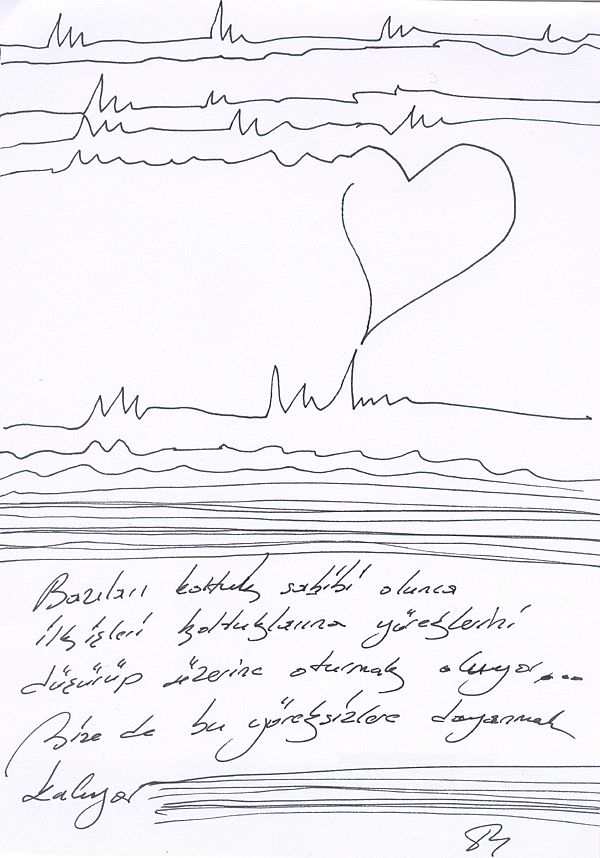 Bazıları koltuk sahibi olunca
ilk işleri koltuklarına yüreklerini
düşürüp üzerine oturmak oluyor...
Bize de bu yüreksizlere dayanmak
kalıyor